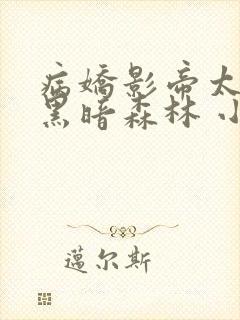 病嬌影帝太
黑暗森林 小
邁尔斯